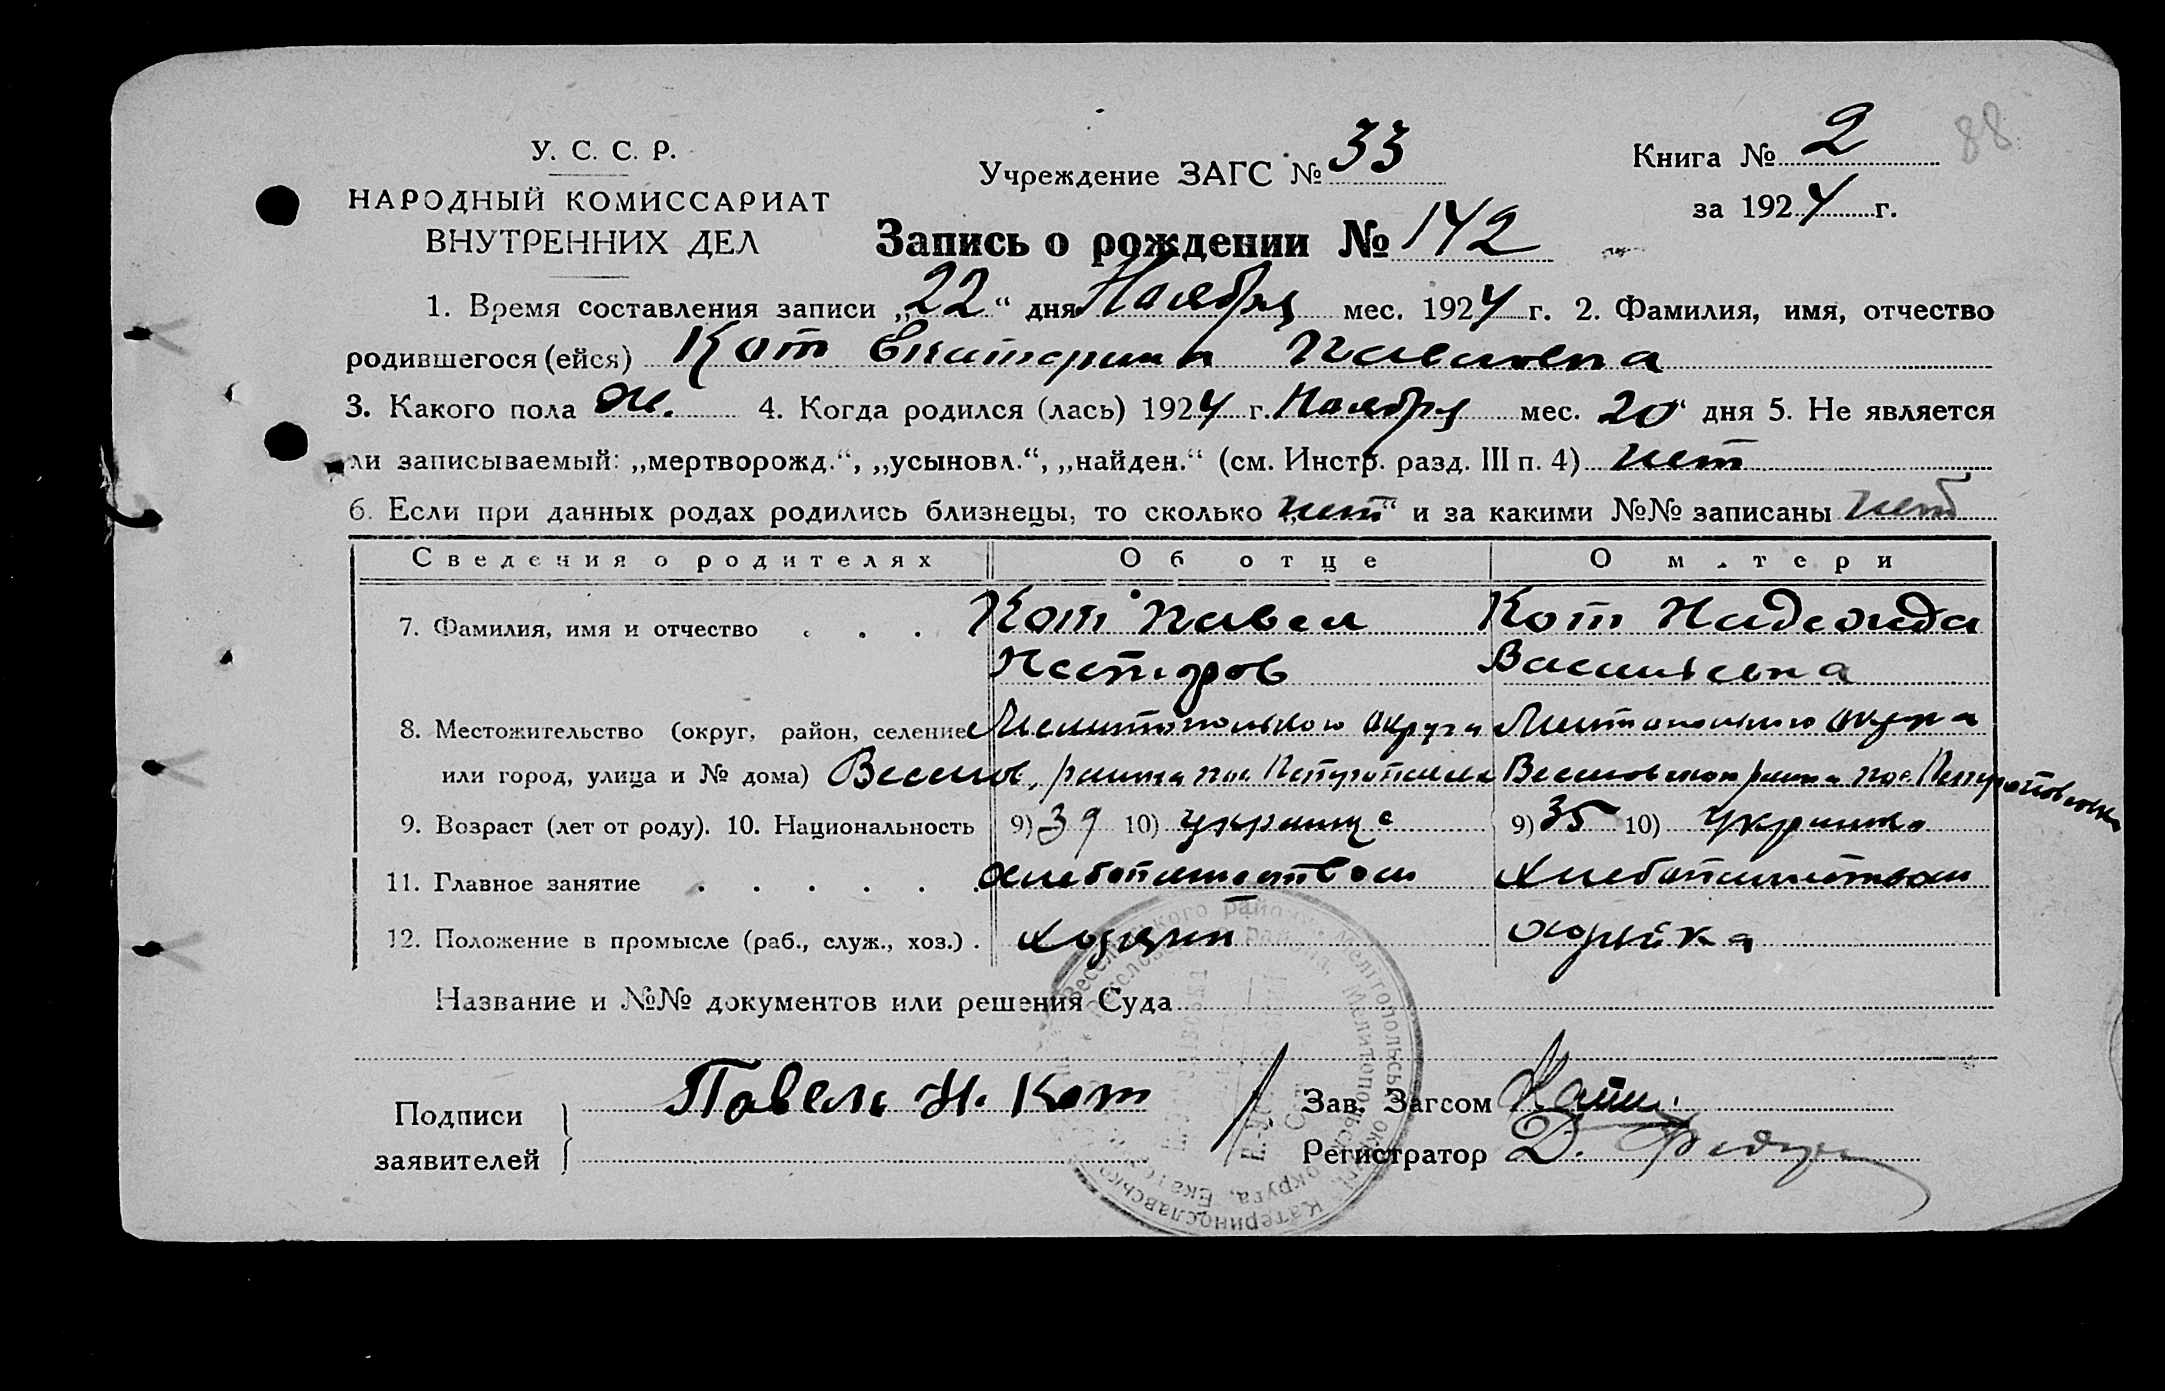 У. С. С. Р.
НАРОДНЫЙ КОМИССАРИАТ
ВНУТРЕННИХ ДЕЛ
Учреждение ЗАГС № 33
Книга № 2
88
за 1924 г.
Запись о рождении № 142
1. Время составления записи „22“ дня Ноября мес. 1924 г. 2. Фамилия, имя, отчество
родившегося (ейся) Кот Екатерина Павловна
3. Какого пола Ж. 4. Когда родился (лась) 1924 г. Ноября мес. 20 дня 5. Не является
ли записываемый: „мертворожд.“, „усыновл.“, „найден.“ (см. Инстр. разд. III п. 4) нет
6. Если при данных родах родились близнецы, то сколько „нет“ и за какими №№ записаны нет
Сведения о родителях Об отце О м.тери
7. Фамилия, имя и отчество . . . Кот Павел Кот Надежда
Нестеров Васильевна
8. Местожительство (округ, район, селение Мелитопольского округа округа
или город, улица и № дома) Веселов. района пос. Веселовского района пос.
9. Возраст (лет от роду). 10. Национальность 9) 39 10) украинце 9) 35 10) украинка
11. Главное занятие . . . . . . хлебопашеством хлебопашеством
12. Положение в промысле (раб., служ., хоз.) . хозяин хозяйка
Название и №№ документов или решения Суда
Подписи
заявителей
Павель Н. Кот
Зав. Загсом
Регистратор Д.